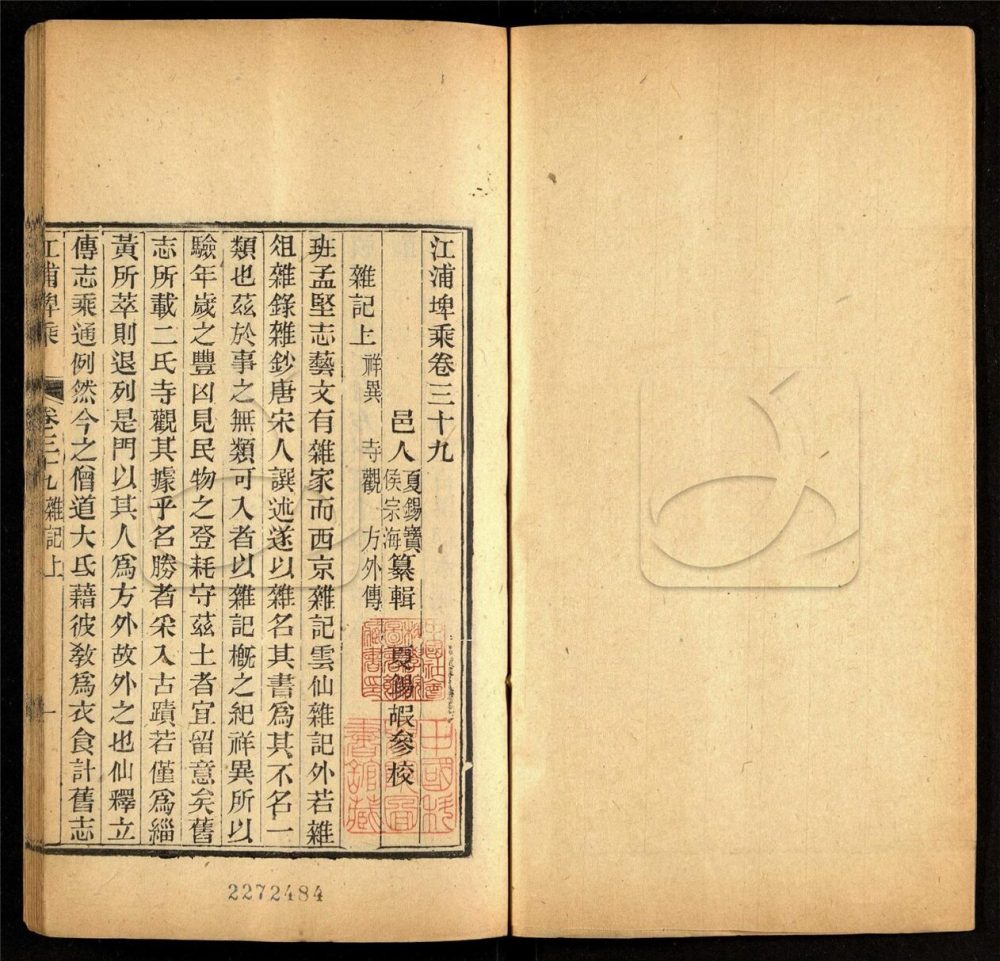 江浦埤乘卷三十九
邑人 夏錫寶 侯宗海 纂輯 夏錫嘏參校
雜記上 祥異 寺觀 方外傳
班孟堅志藝文有雜家而西京雜記雲仙雜記外若雜
俎雜錄雜鈔唐宋人譔述遂以雜名其書爲其不名一
類也茲於事之無類可入者以雜記槪之紀祥異所以
驗年歲之豐凶見民物之登耗守茲土者宜留意矣舊
志所載二氏寺觀其據乎名勝者采入古蹟若僅爲緇
黃所萃則退列是門以其人爲方外故外之也仙釋立
傳志乘通例然今之僧道大氐藉彼敎爲衣食計舊志
江浦埤乘 卷三十九 雜記上 一
2272484